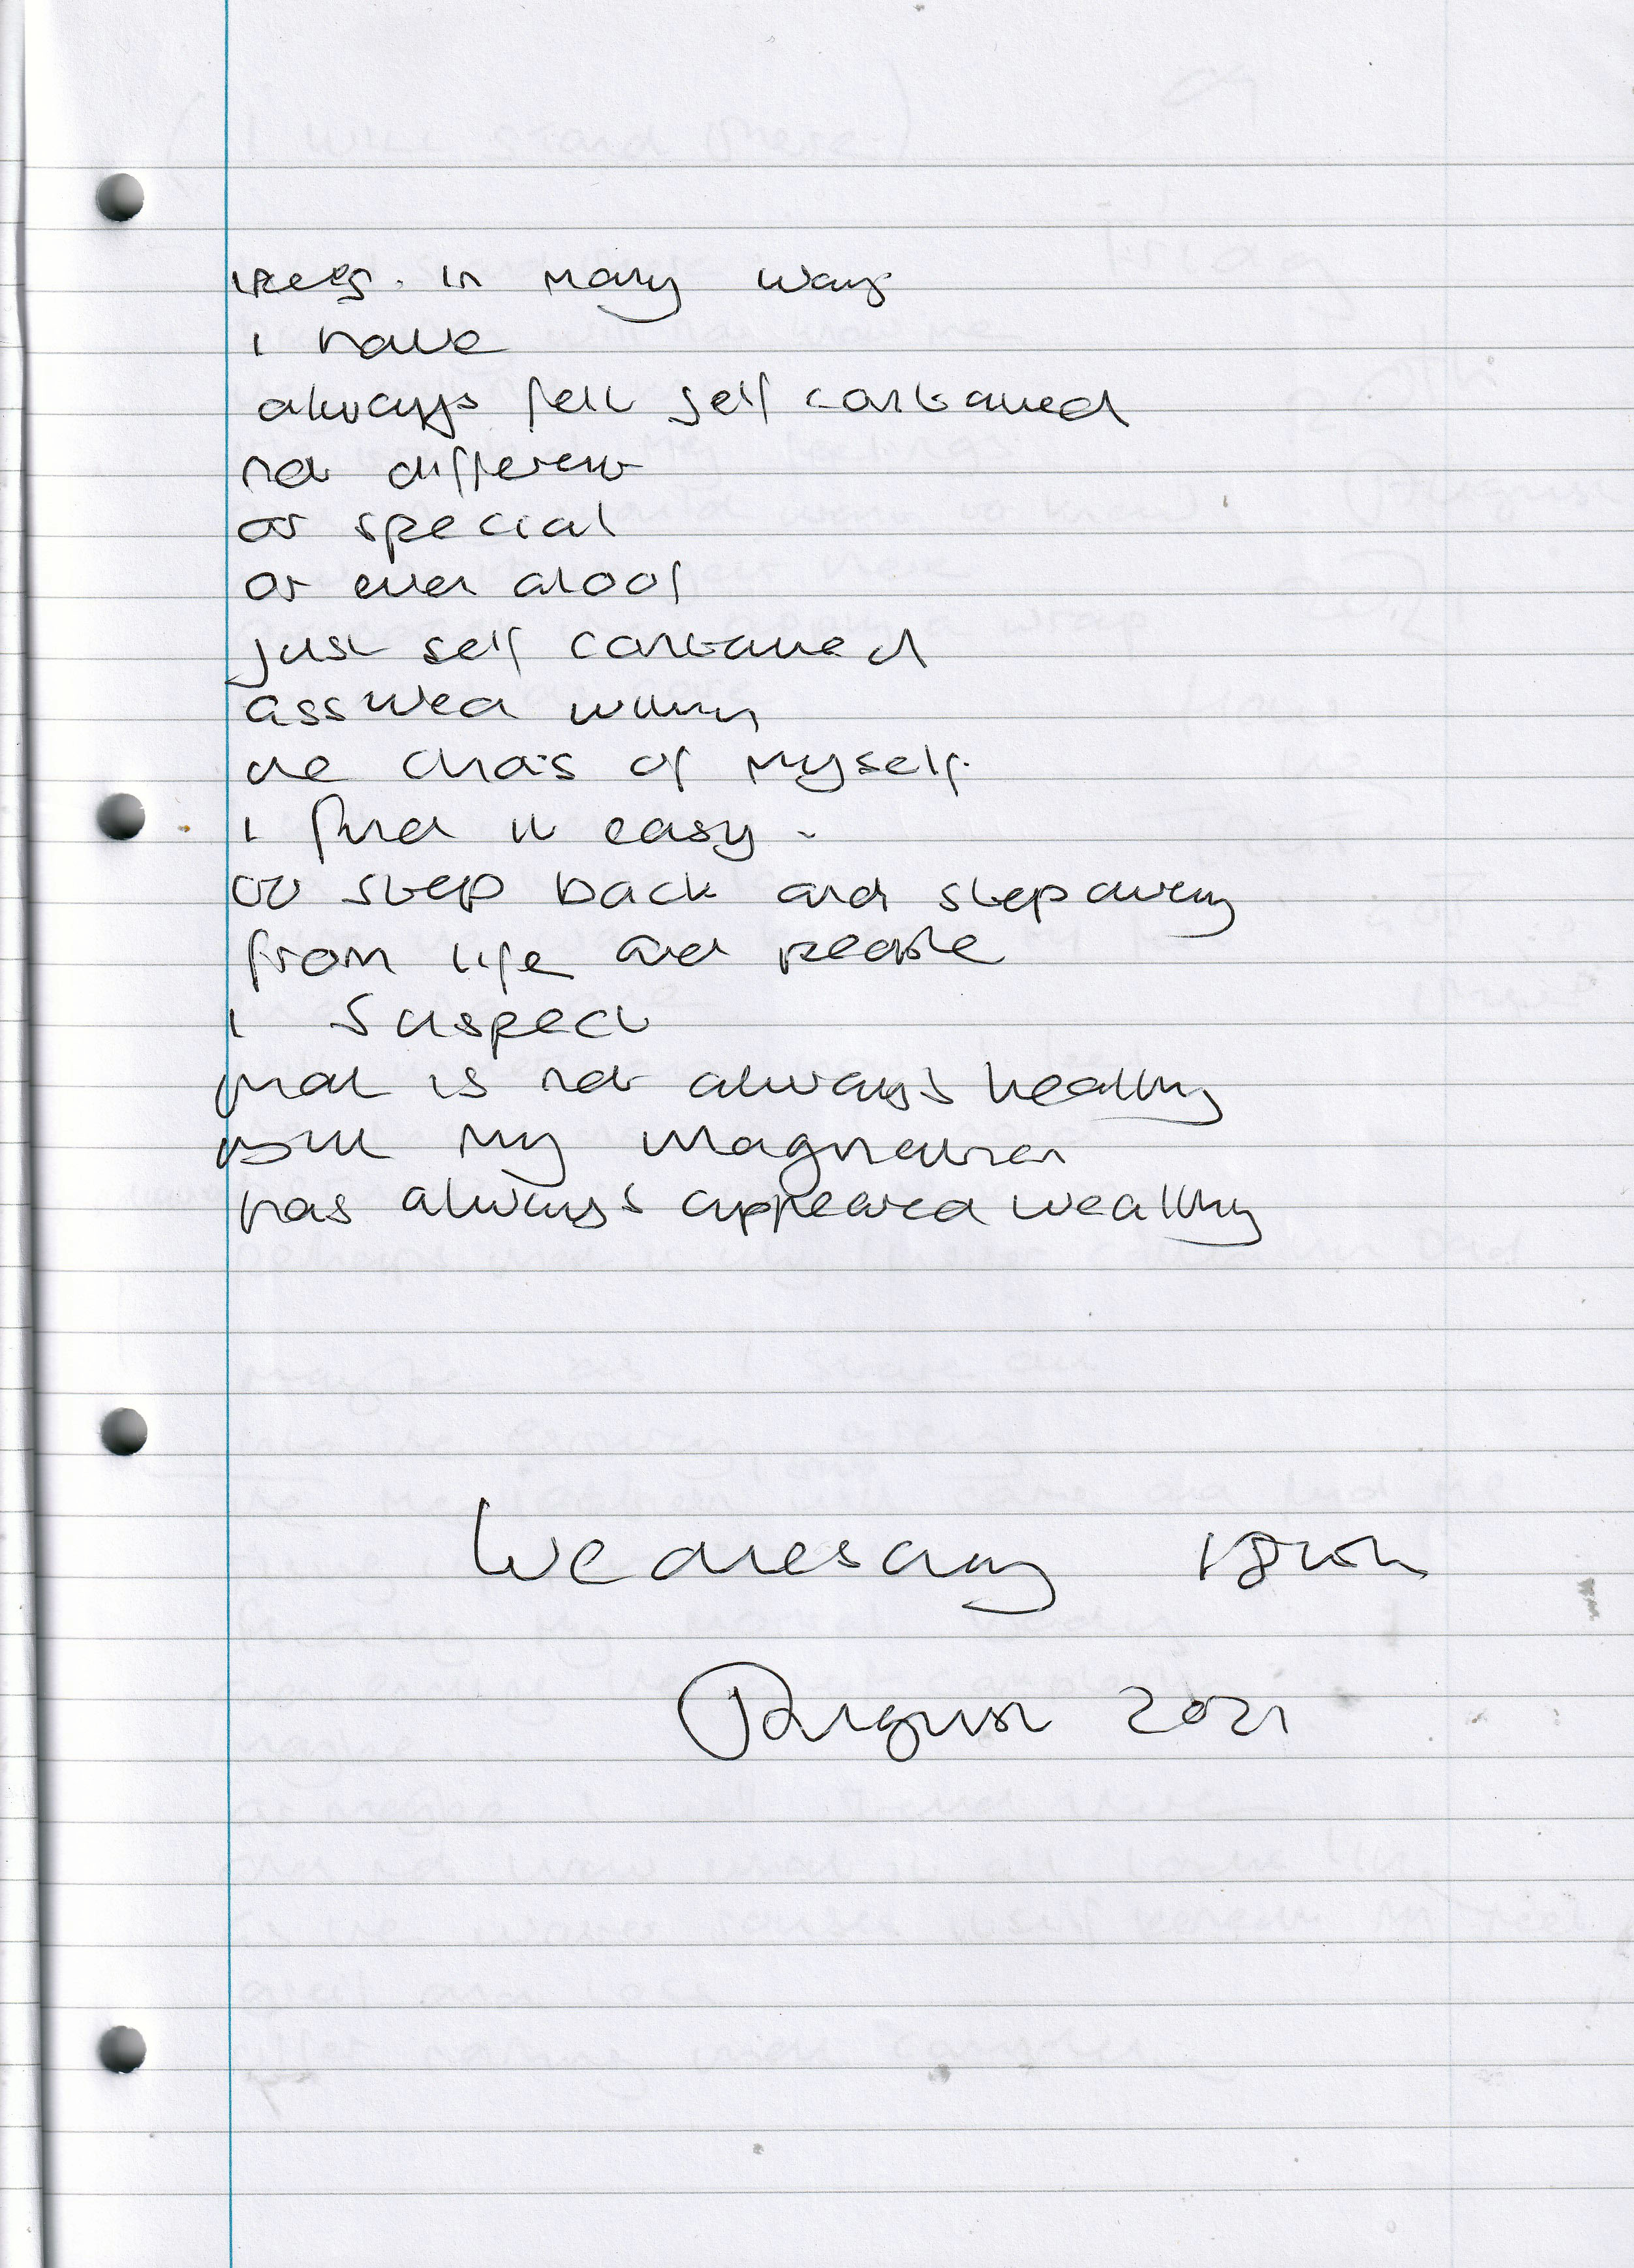 in many ways
I have
always felt self contained
not different
or special
or even aloof
just self contained
assured within
the chaos of myself.
I find it easy
to step back and step away
from life and people
I suspect
that is not always healthy
but my imagination
has always appeared wealthy
Wednesday 18th
August 2021